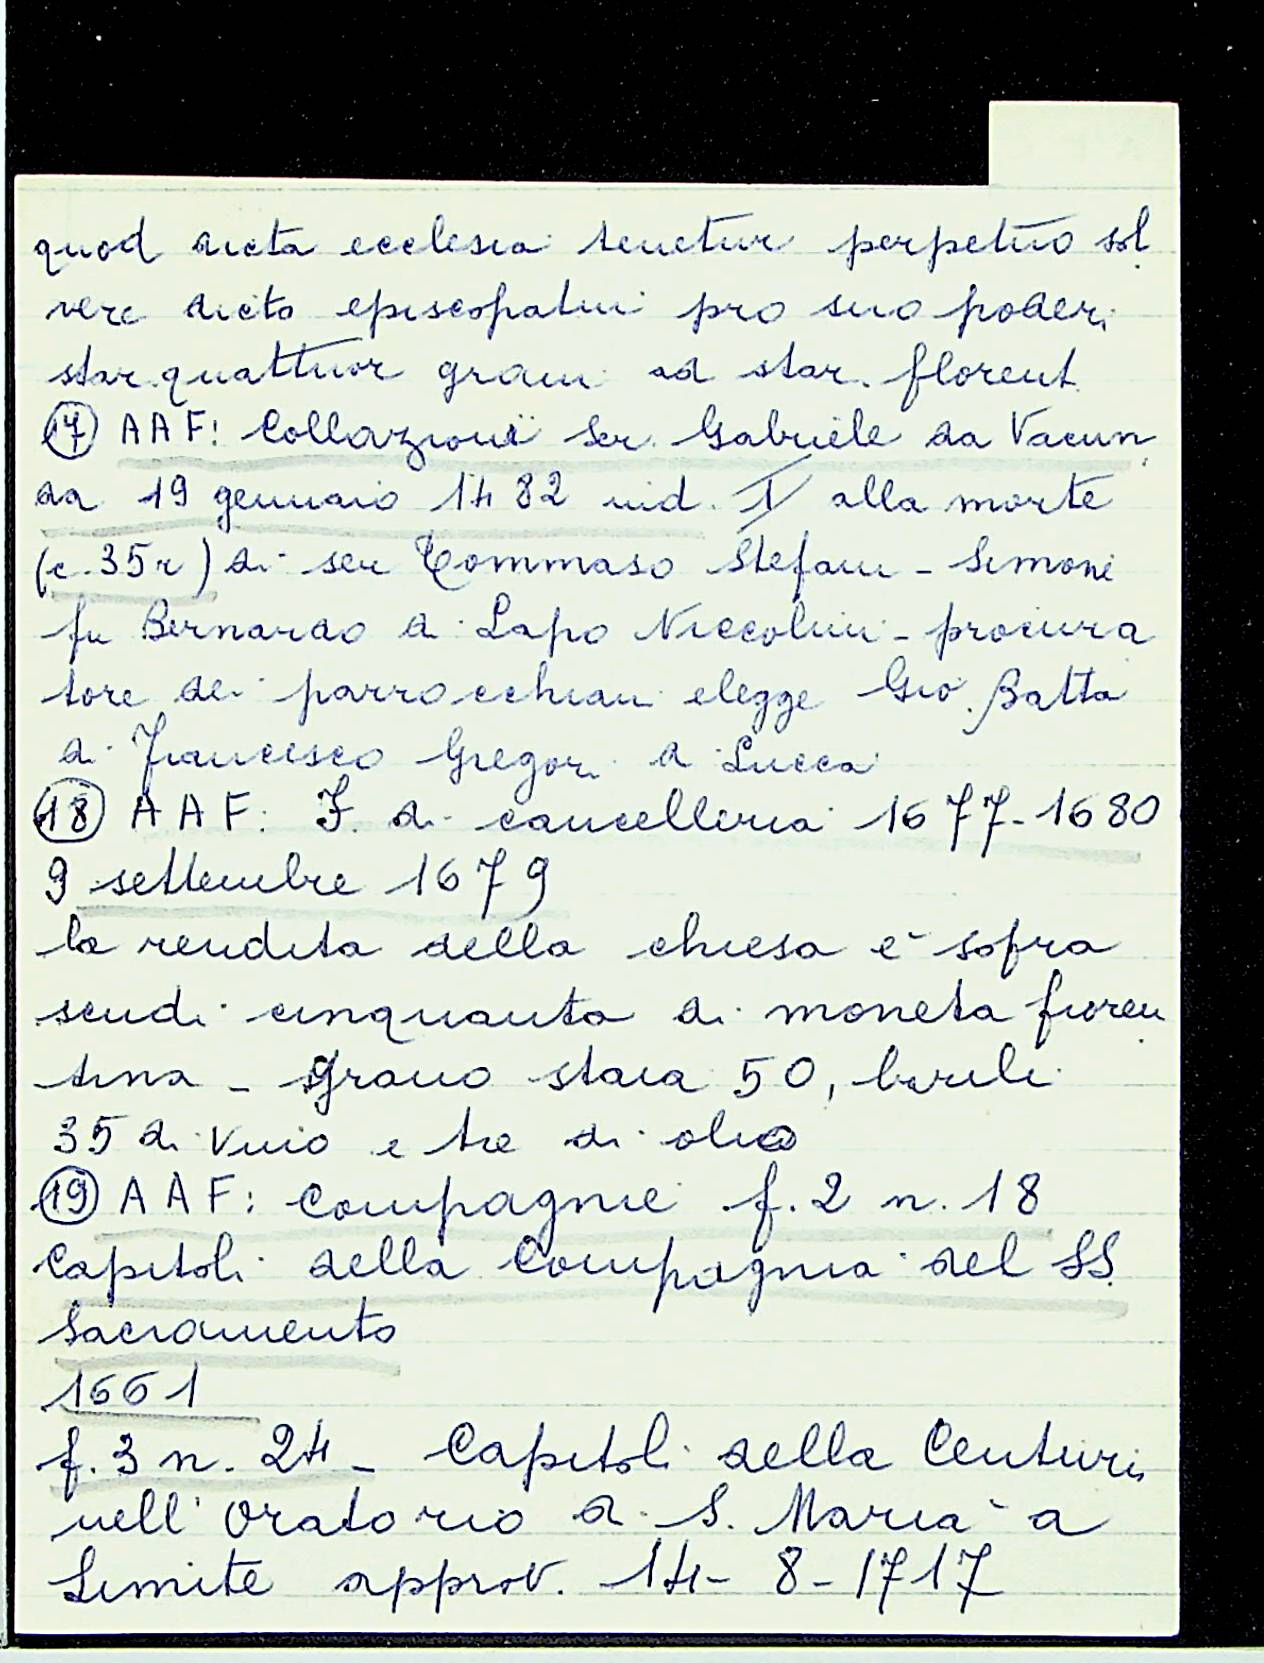 quod dicta ecclesia tenetur perpetuo sol
vere dicto episcopatui pro suo poderi
star. quattuor grani ad star. florent.
(17) AAF: Collazioni ser Gabriele da Vacun
da 19 gennaio 1482 ind. I alla morte
(c. 35r) di ser Tommaso Stefani - Simone
fu Bernardo di Lapo Niccolini - procura
tore dei parrocchiani elegge Gio. Batta
di Francesco Gregori di Lucca
(18) AAF: F. di cancelleria 1677-1680
9 settembre 1679
la rendita della chiesa è sopra
scudi cinquanta di moneta fioren
tina - grano staia 50, barili
35 di vino e tre di olio
(19) AAF: Compagnie f. 2 n. 18
Capitoli della Compagnia del SS.
Sacramento
1661
f. 3 n. 24 - Capitoli della Centuri
nell'Oratorio di S. Maria a
Limite approv. 14-8-1717